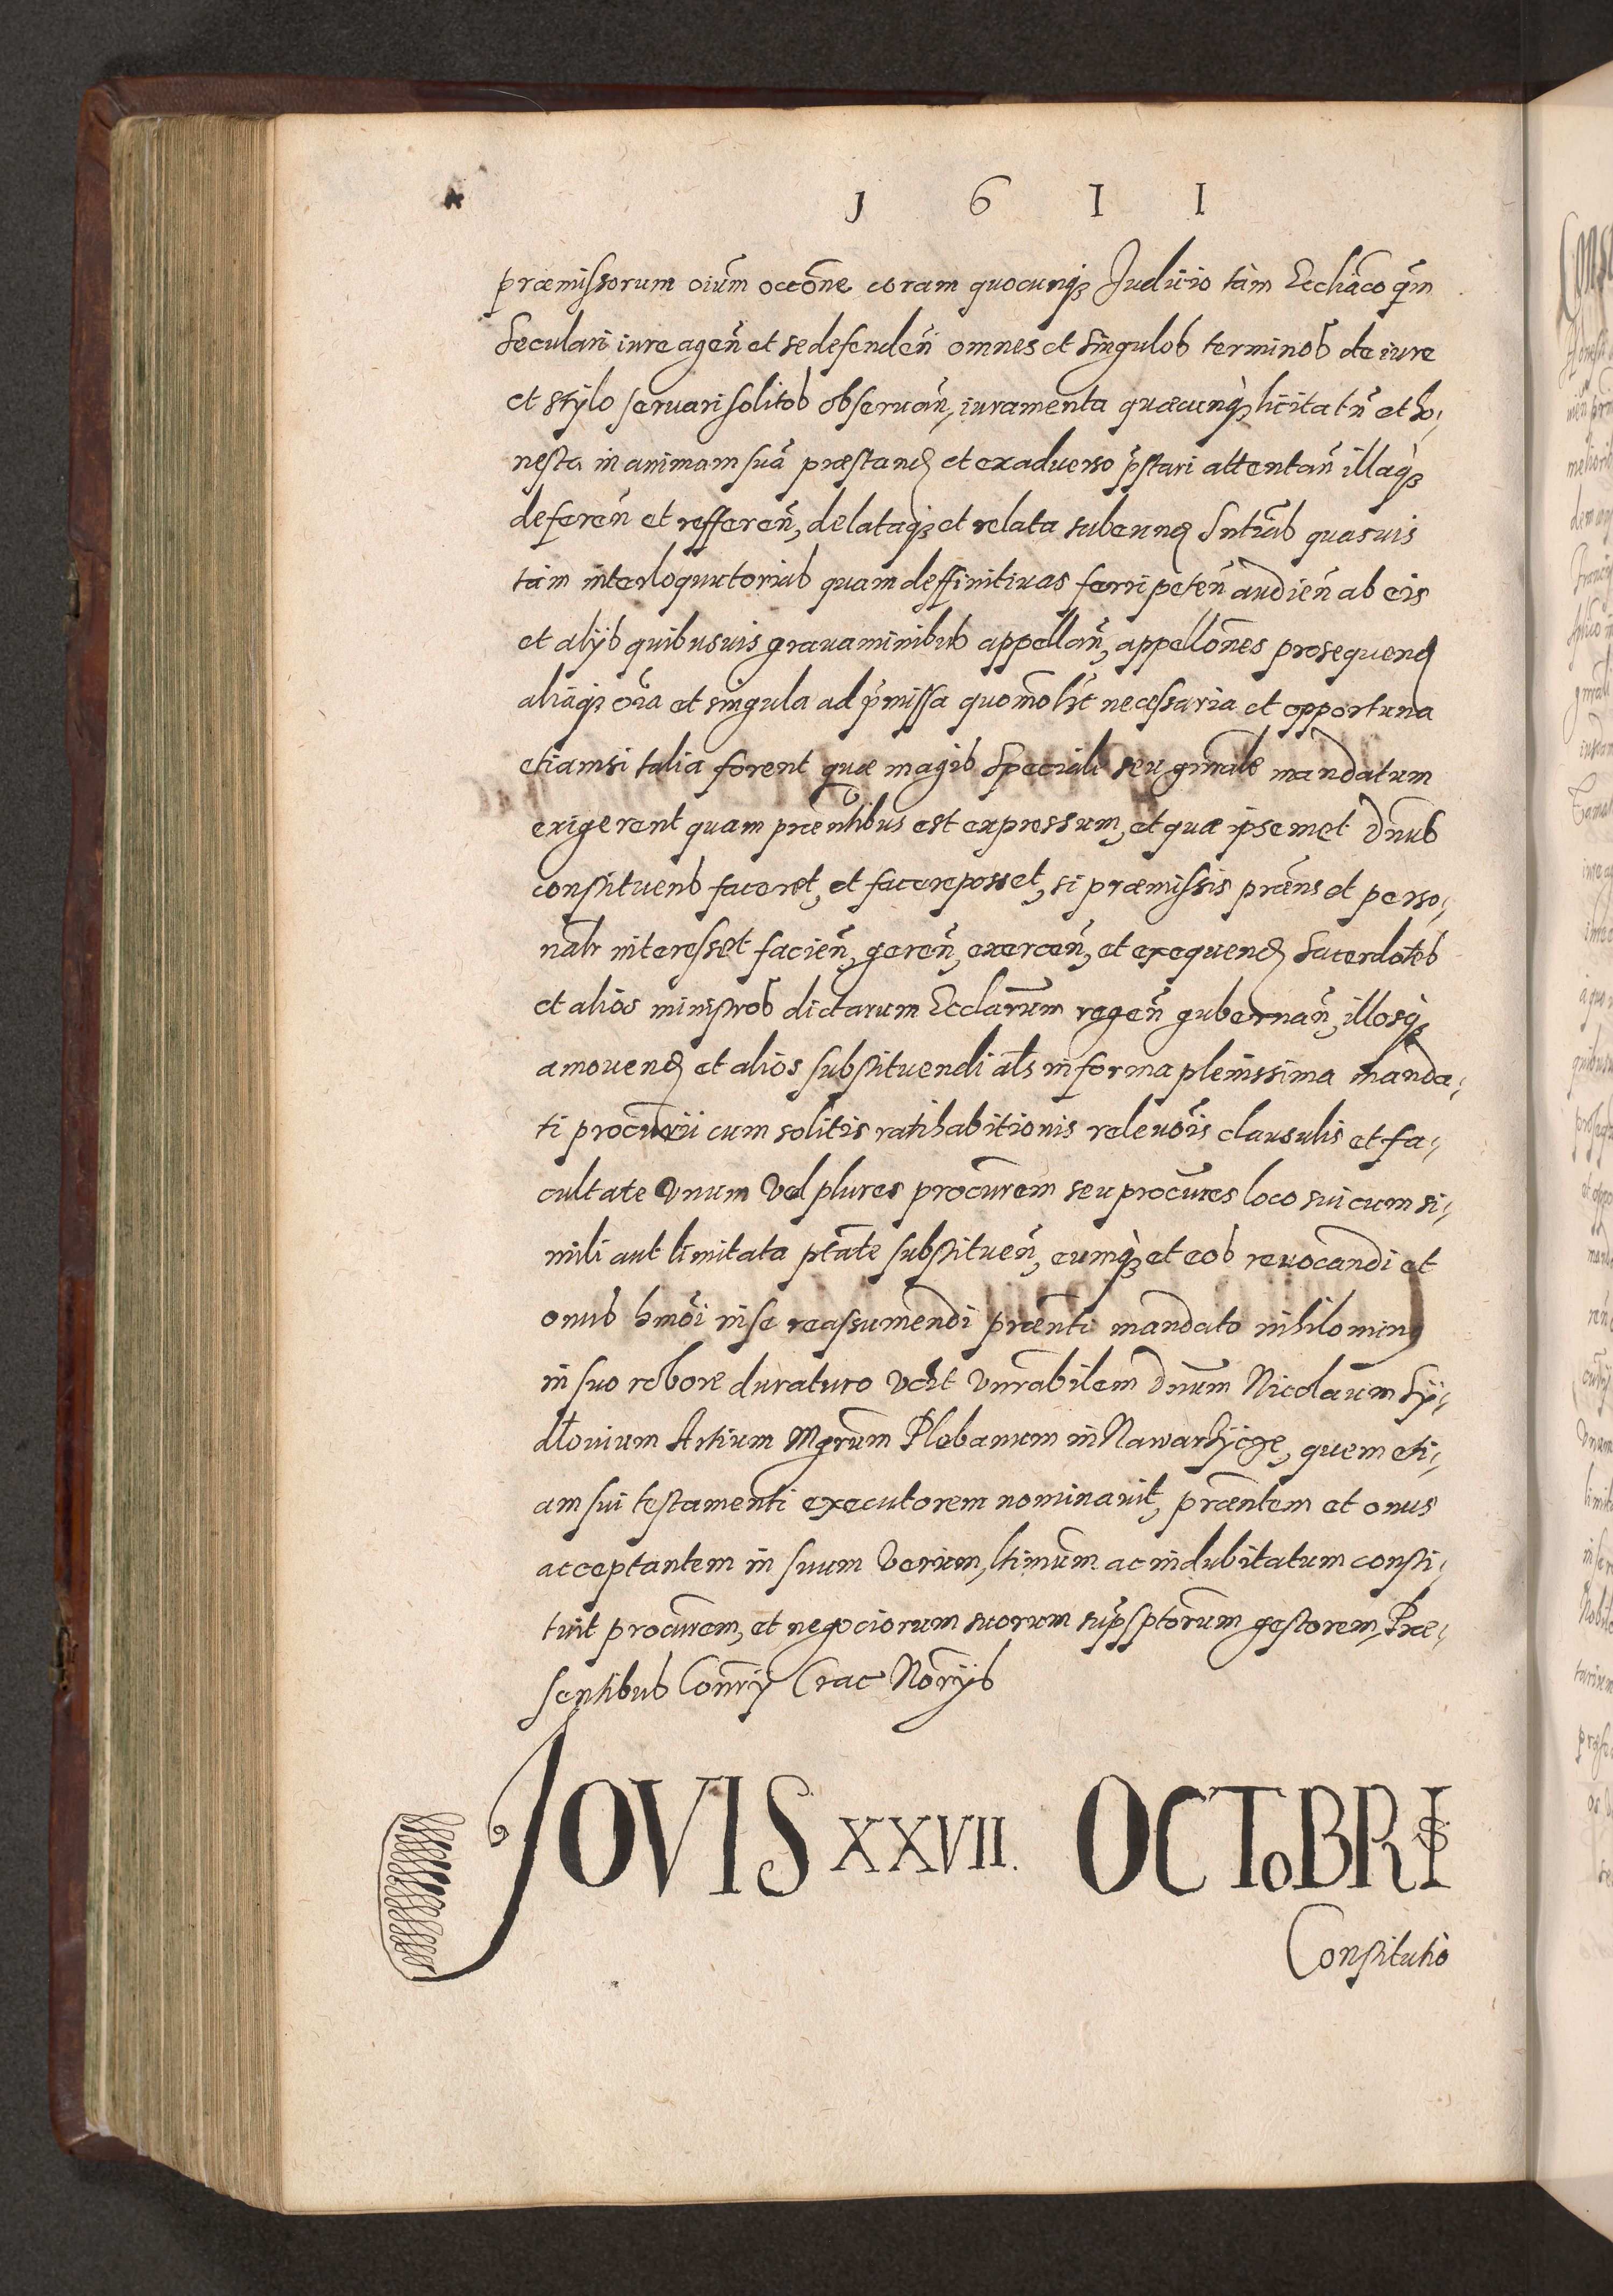 1 6 I I
præmissorum oium occōne coram quocunq; Judicio tàm Ecclīaco q̄m
Seculari iure agen̄ et se defenden̄ omnes et singulos terminos de iure
et stylo seruari solitos obseruan̄, iuramenta quæcunq; licita tn̄ et ho-
nesta in animam suā præstand et ex aduerso p̄stari attentan̄ illaq;
deferen̄ et refferen̄, delataq; et relata subeund Sntīas quasuis
tàm interloquutorias quam deffinitiuas ferri peten̄ audien̄ ab eis
et alijs quibusuis grauaminibus appellan̄, appellōnes prosequend
aliaq; oīa et singula ad p̄missa quomolt necessaria et opportuna
etiamsi talia forent quæ magis speciale seu gn̄rale mandatum
exigerent quam præn̄tibus est expressum, et quæ ipsemet Dn̄us
constituens faceret, et facere posset, si præmissis præn̄s et perso-
nalr interesset facien̄, geren̄, exercen̄, et exequend Sacerdotes
et alios ministros dictarum Ecclārum regen̄ gubernan̄, illosq;
amouend et alios substituendi als in forma plenissima manda-
ti procur̄ii cum solitis ratihabitionis releuōis clausulis et fa-
cultate vnum vel plures procur̄em seu procur̄es loco sui cum si-
mili aut limitata ptāte substituen̄, eumq; et eos reuocandi et
onus hmōi in se reassumendi præn̄ti mandato nihilominus
in suo robore duraturo vclt vn̄rabilem Dn̄um Nicolaum Sy-
dłouium Artium Mgr̄um Plebanum in Nawarzycze, quem eti-
am sui testamenti executorem nominauit, præn̄tem et onus
acceptantem in suum verum, ltimum ac indubitatum consti-
tuit procur̄em, et negociorum suorum sup̄sptorum gestorem, Præ-
sentibus Conr̄ij Crac Norijs
JOVIS XXVII. OCTOBRIS
Constitutio